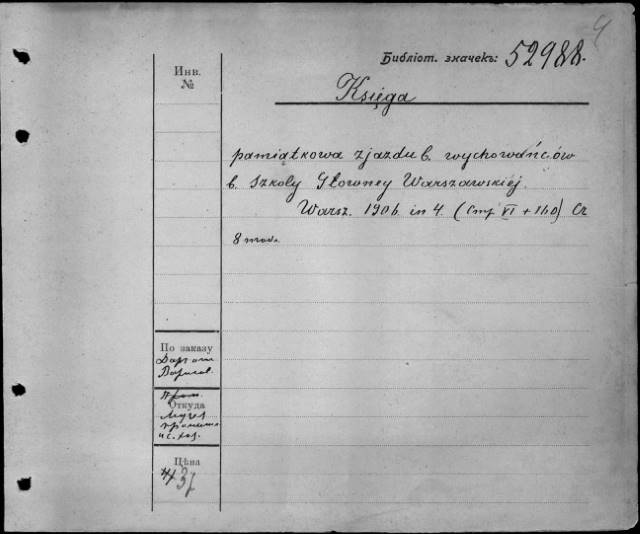 4
Библіот. значекъ: 52988.
Инв.
№
Księga
pamiątkowa zjazdu b. wychowańców
b. Szkoły Głownej Warszawskiej.
Warsz. 1906. in 4. (Стр VI + 160) Cz
8
По заказу
Откуда
Цѣна